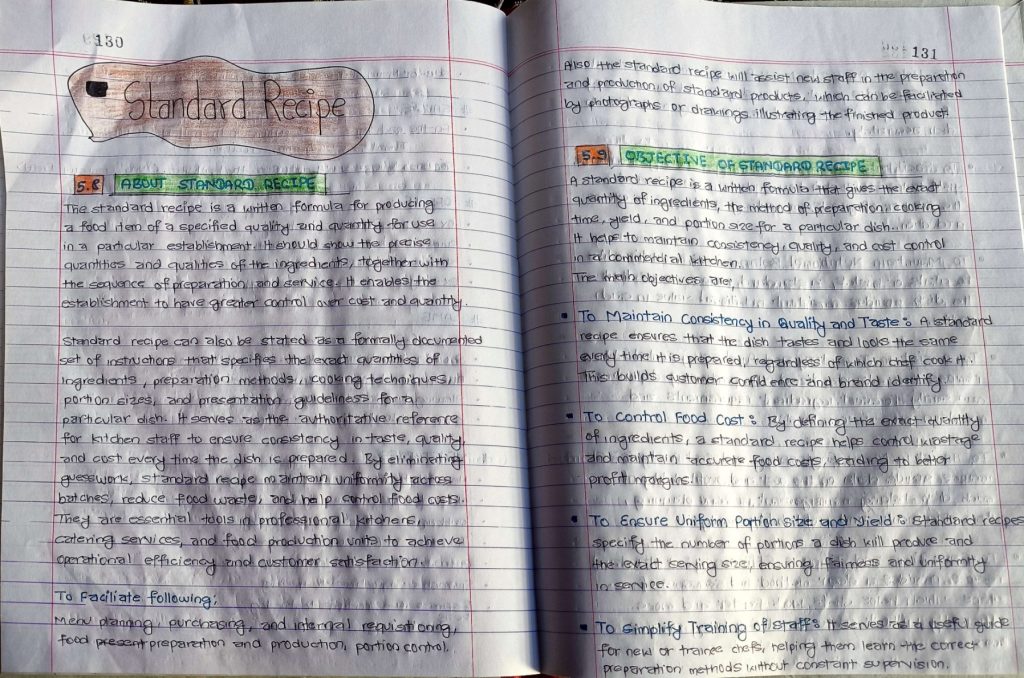 130
Standard Recipe
5.8 ABOUT STANDARD RECIPE
The standard recipe is a written formula for producing
a food item of a specified quality and quantity for use
in a particular establishment. It should show the precise
quantities and qualities of the ingredients, together with
the sequence of preparation and service. It enables the
establishment to have greater control over cost and quantity.
Standard recipe can also be stated as a formally documented
set of instructions that specifies the exact quantities of
ingredients, preparation methods, cooking techniques,
portion sizes, and presentation guideliness for a
particular dish. It serves as the authoritative reference
for kitchen staff to ensure consistency in taste, quality,
and cost every time the dish is prepared. By eliminating
guesswork, standard recipe maintain uniformity across
batches, reduce food waste, and help control food costs.
They are essential tools in professional kitchens,
catering services, and food production units to achieve
operational efficiency and customer satisfaction.
To Faciliate following;
Menu planning, purchasing, and internal requistioning,
food present preparation and production, portion control.
131
Also the standard recipe will assist new staff in the preparation
and production of standard products, which can be faciliated
by photographs or drawings illustrating the finished product.
5.9 OBJECTIVE OF STANDARD RECIPE
A standard recipe is a written formula that gives the exact
quantity of ingredients, the method of preparation, cooking
time, yield, and portion size for a particular dish.
It helps to maintain consistency, quality, and cost control
in a commercial kitchen.
The main objectives are:
• To Maintain Consistency in Quality and Taste: A standard
recipe ensures that the dish tastes and looks the same
every time it is prepared, regardless of which chef cook it.
This builds customer confidence and brand identify.
• To Control Food Cost: By defining the exact quantity
of ingredients, a standard recipe helps control wastage
and maintain accurate food costs, leading to better
profit margins.
• To Ensure Uniform Portion Size and Yield: Standard recipes
specify the number of portions a dish will produce and
the exact serving size, ensuring fairness and uniformity
in service.
• To Simplify Training of Staff: It serves as a useful guide
for new or trainee chefs, helping them learn the correct
preparation methods without constant supervision.